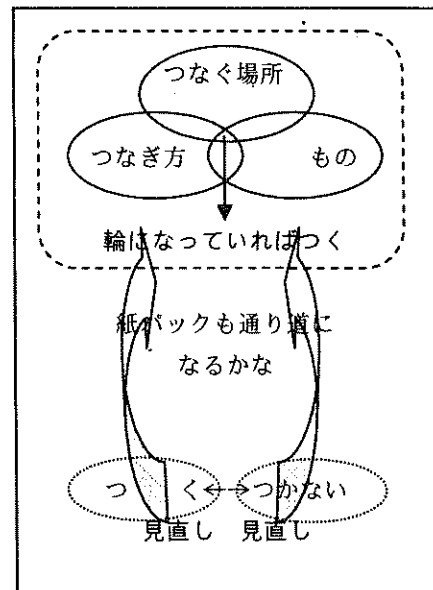 つなぐ場所
つなぎ方 もの
輪になっていればつく
紙パックも通り道に
なるかな
つく つかない
見直し 見直し